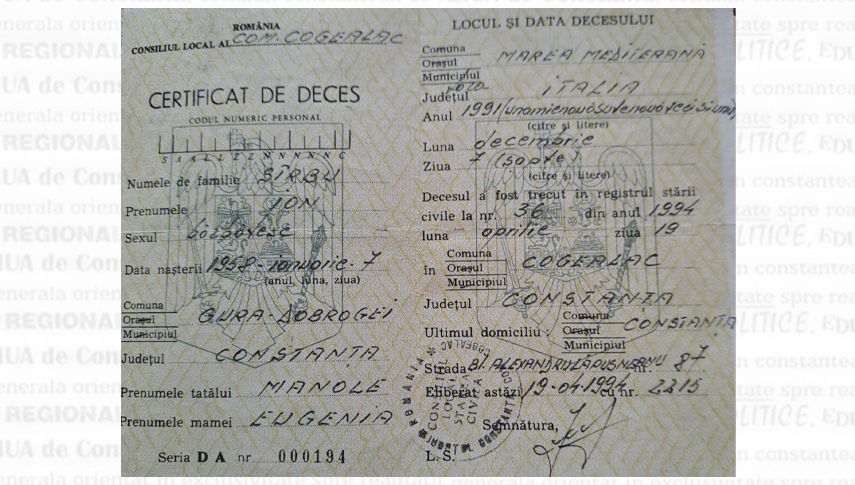 ROMÂNIA
CONSILIUL LOCAL AL COM. COGEALAC
CERTIFICAT DE DECES
CODUL NUMERIC PERSONAL
S A A L L Z Z N N N N N C
Numele de familie SÎRBU
Prenumele ION
Sexul bărbătesc
Data nașterii 1958 - ianuarie - 7
(anul, luna, ziua)
Comuna
Orașul
Municipiul
GURA-DOBROGEI
Județul CONSTANȚA
Prenumele tatălui MANOLE
Prenumele mamei EUGENIA
Seria DA nr 000194
LOCUL ȘI DATA DECESULUI
Comuna
Orașul
Municipiul
MAREA MEDITERANĂ
Județul ITALIA
Anul 1991 (unamienouăsutenouăzecișiunu)
(cifre și litere)
Luna decembrie
Ziua 7 (șapte)
(cifre și litere)
Decesul a fost trecut în registrul stării
civile la nr. 36 din anul 1994
luna aprilie ziua 19
în
Comuna
Orașul
Municipiul
COGEALAC
Județul CONSTANȚA
Ultimul domiciliu :
Comuna
Orașul
Municipiul
CONSTANȚA
Strada Bl. ALEXANDRU LĂPUȘNEANU nr. 87
Eliberat astăzi 19-04-1994 cu nr. 2215
Semnătura,
L. S.